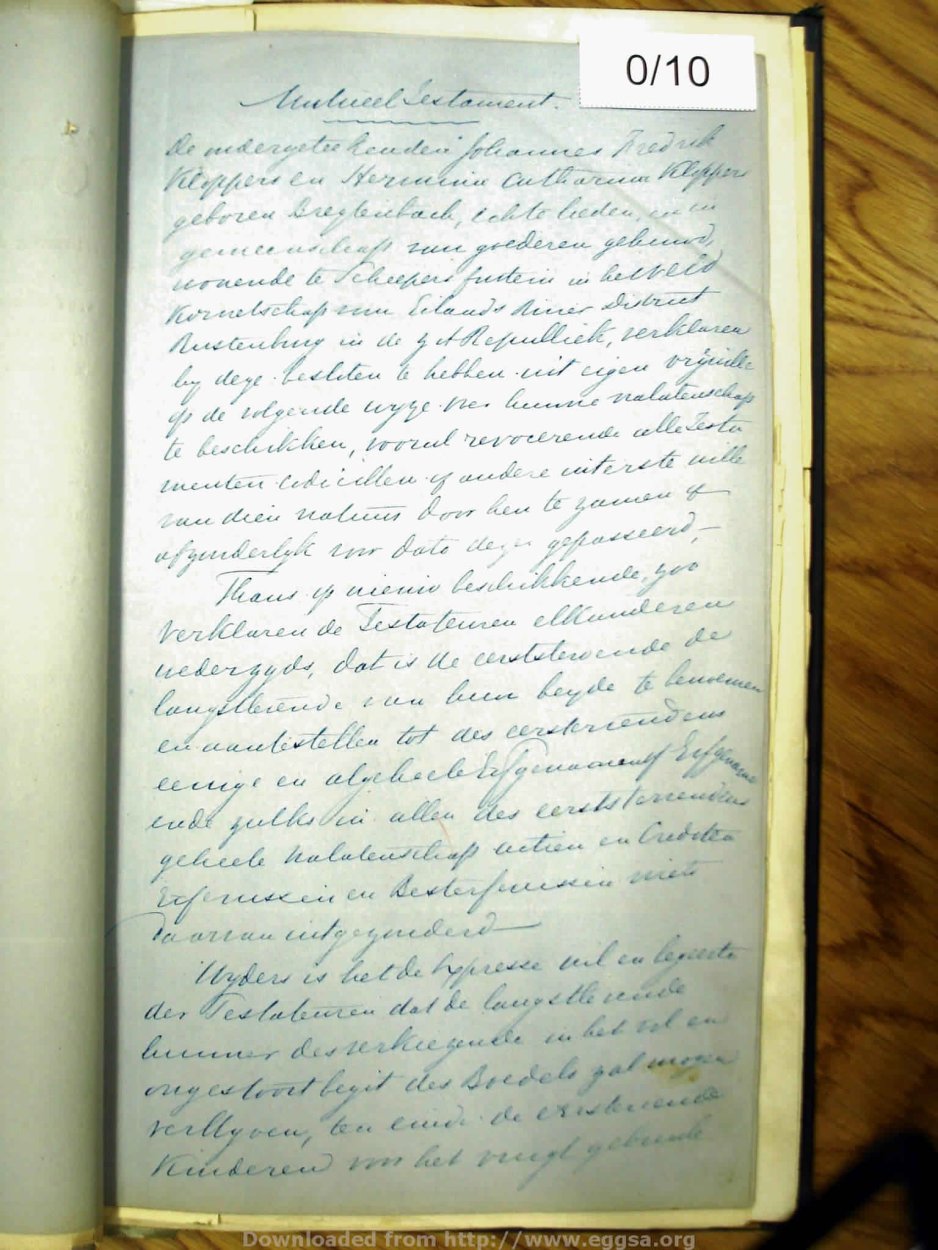 0/10
Mutueel Testament.
De ondergeteekenden Johannes Fredrik
Kloppers en Hermina Catharina Kloppers
geboren Breytenbach, echte lieden, en in
gemeenschap van goederen gehuwd,
wonende te Scheepersfontein in het Veld
Kornetschap van Eilands River District
Rustenburg in de Z A Republiek, verklaren
by deze besloten te hebben uit eigen vrijwille
op de volgende wyze over hunne nalatenschap
te beschikken, vooral revocerende alle Testa
menten codicillen of andere uiterste wille
van dien natuur door hen te zamen of
afzonderlyk voor dato dezer gepasseerd,—
Thans op nieuw beschikkende, zoo
verklaren de Testateuren elkanderen
wederzyds, dat is de eerststervende de
langstlevende van hun beyde te benoemen
en aantestellen tot des eerstervendens
eenige en algeheele Erfgenaam of Erfgename
ende zulks in allen des eerststervendens
geheele Nalatenschap actien en Crediten
Erfenissen en Besterfenissen niets
daarvan uitgezonderd—
Wyders is het de Expresse wil en begeerte
der Testateuren dat de langstlevende
hunner desverkiezende in het vol en
ongestoort bezit des Boedels zal mogen
verblyven, ten einde de
Kinderen voor het
Downloaded from http://www.eggsa.org